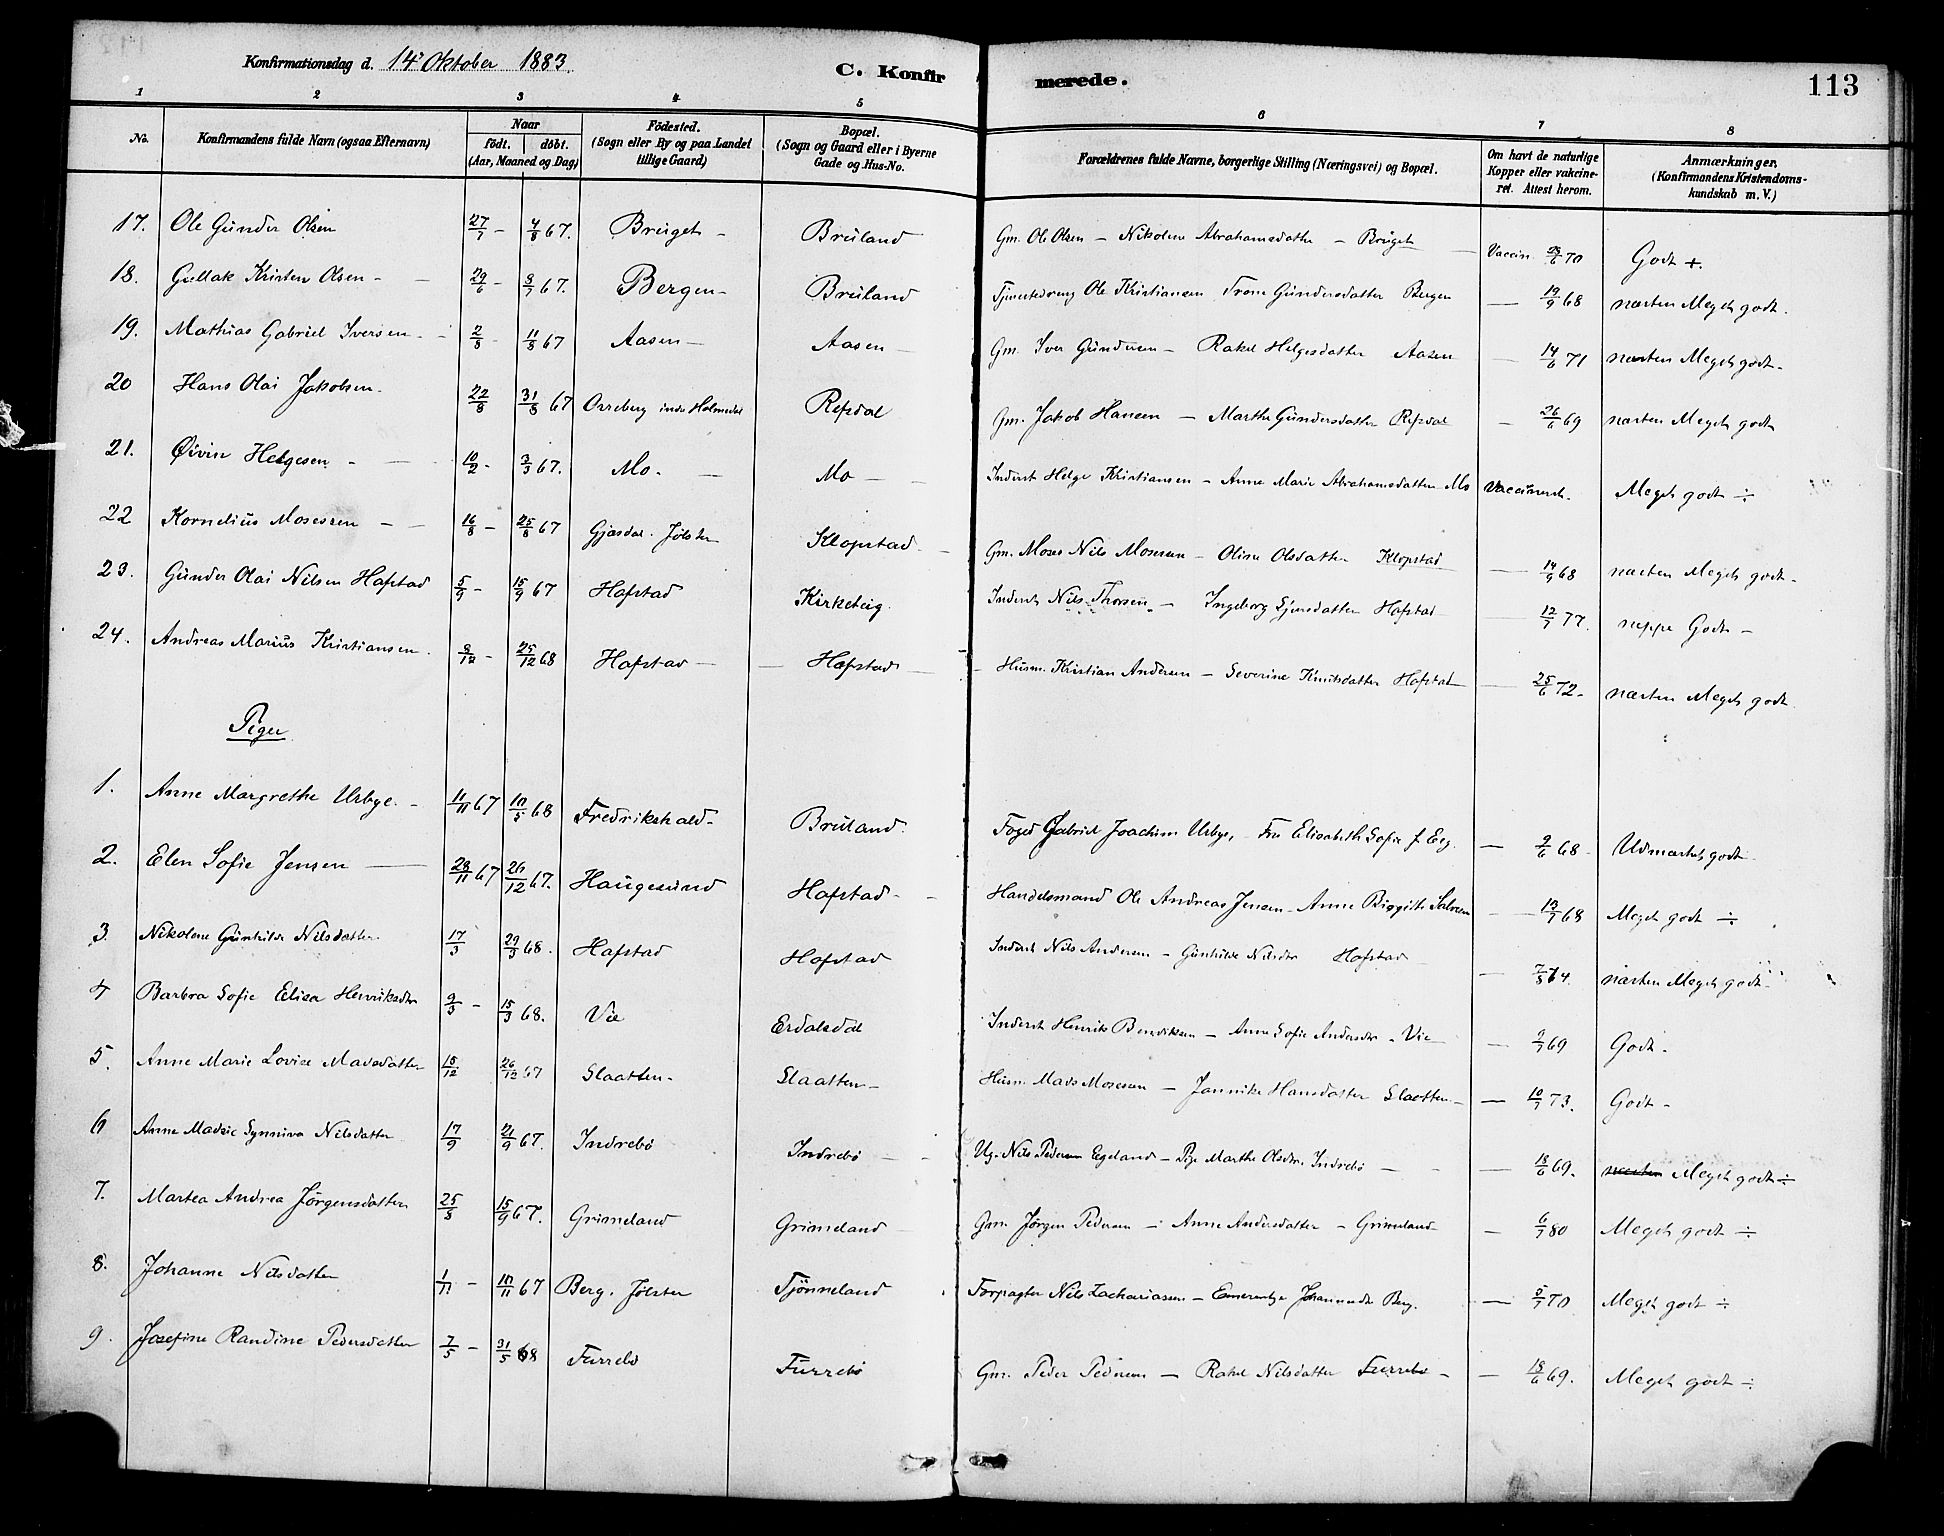 Konfirmationsdag d. 14de Oktober 1883.
C. Konfirmerede.
113
1 2 3 4 5 6 7 8
No. | Konfirmandens fulde Navn (ogsaa Efternavn) | Naar födt. döbt. (Aar, Maaned og Dag) | Födested. (Sogn eller By og paa Landet tillige Gaard) | Bopæl. (Sogn og Gaard eller i Byerne Gade og Hus-No. | Forældrenes fulde Navne, borgerlige Stilling (Næringsvei) og Bopæl. | Om havt de naturlige Kopper eller vakcineret. Attest herom. | Anmærkninger, (Konfirmandens Kristendomskundskab m. V.)
17. Ole Gunder Olsen 27/7 - 4/8 67. Bruget - Bruland Gm. Ole Olsen - Nikoline Abrahamsdatter - Bruget Vaccin. 23/6 70 Godt +.
18. Gullak Kristen Olsen - 29/6 - 8/7 67. Bergen - Bruland Tjenestedreng Ole Kristiansen Trone Gundersdatter Bergen — 19/9 68 næsten Meget godt.
19. Mathias Gabriel Iversen - 2/8 - 11/8 67 Aasen - Aasen - Gm. Iver Gundersen - Rakel Helgesdatter Aasen — 14/6 71 næsten Meget godt.
20 Hans Olai Jakobsen 22/8 31/8 67 Osseberg indre Holmedal Refsdal Gm. Jakob Hansen - Marthe Gundersdatter Refsdal - 26/6 69 næsten Meget godt
21. Øivin Helgesen - 10/2 - 3/3 67. Mo. - Mo - Inderst Helge Kristiansen - Anne Marie Abrahamsdatter Mo Vaccineret. Meget godt ÷
22 Kornelius Mosessen - 16/8 - 25/8 67 Gjæsdal. Jølster Klopstad - Gm. Moses Nils Mosesen - Oline Olsdatter Klopstad — 14/9 68 næsten Meget godt -
23. Gunder Olai Nilsen Hafstad 5/9 - 15/9 67 Hafstad Kirketeig. Inderst Nils Thorsen - Ingeborg Sjursdatter Hafstad — 12/7 77. neppe Godt -
24. Andreas Marius Kristiansen. 8/12 - 25/12 68 Hafstad - Hafstad - Husm. Kristian Andersen - Severine Knutsdatter Hafstad — 25/6 72. næsten Meget godt
Piger
1. Anne Margrethe Urbye. - 11/11 67 10/5 68 Fredrikshald - Bruland. Foged Gabriel Joachim Urbye, Fru Elisabeth Sofie f. Eeg. — 9/6 68 Udmærket godt
2. Elen Sofie Jensen - 28/11 67 26/12 67. Haugesund Hafstad - Handelsmand Ole Andreas Jensen - Anne Birgithe Salvesen - 13/7 68 Meget godt ÷
3. Nikoline Gunhilde Nilsdatter 17/3 29/3 68. Hafstad Hafstad Inderst Nils Andersen - Gunhilde Nilsdtr Hafstad — 7/8 74. næsten Meget godt
4 Barbra Sofie Elisa Henriksdtr 9/3 - 15/3 68. Vie Erdalsdal Inderst Henrik Bendiksen - Anne Sofie Andersdtr - Vie — 9/7 69 Godt -
5. Anne Marie Lovise Madsdatter 15/12 26/12 67 Slaatten - Slaatten - Husm. Mads Mosesen - Jannike Hansdatter Slaatten - — 10/7 73. Godt -
6 Anne Madzie Synniva Nilsdatter 17/9 21/9 67. Indrebö Indrebö - Ug. Nils Pedersen Egeland - Pige Marthe Olsdtr. Indrebö - — 18/6 69. næsten Meget godt ÷
7. Martea Andrea Jørgensdatter 25/8 15/9 67. Grimeland Grimeland Gm. Jørgen Pedersen - Anne Andersdatter - Grimeland — 6/7 80 Meget godt ÷
8. Johanne Nilsdatter 1/11 - 10/11 67 Berg. Jølster Tjønneland Forpagter Nils Zachariassen - Emerentze Johannesdtr Berg. — 5/7 70 Meget godt ÷
9. Josefine Randine Pedersdatter 7/5 - 31/5 68 Furrebö Furrebö Gm. Peder Pedersen - Rakel Nilsdatter Furrebö - — 18/6 69. Meget godt ÷